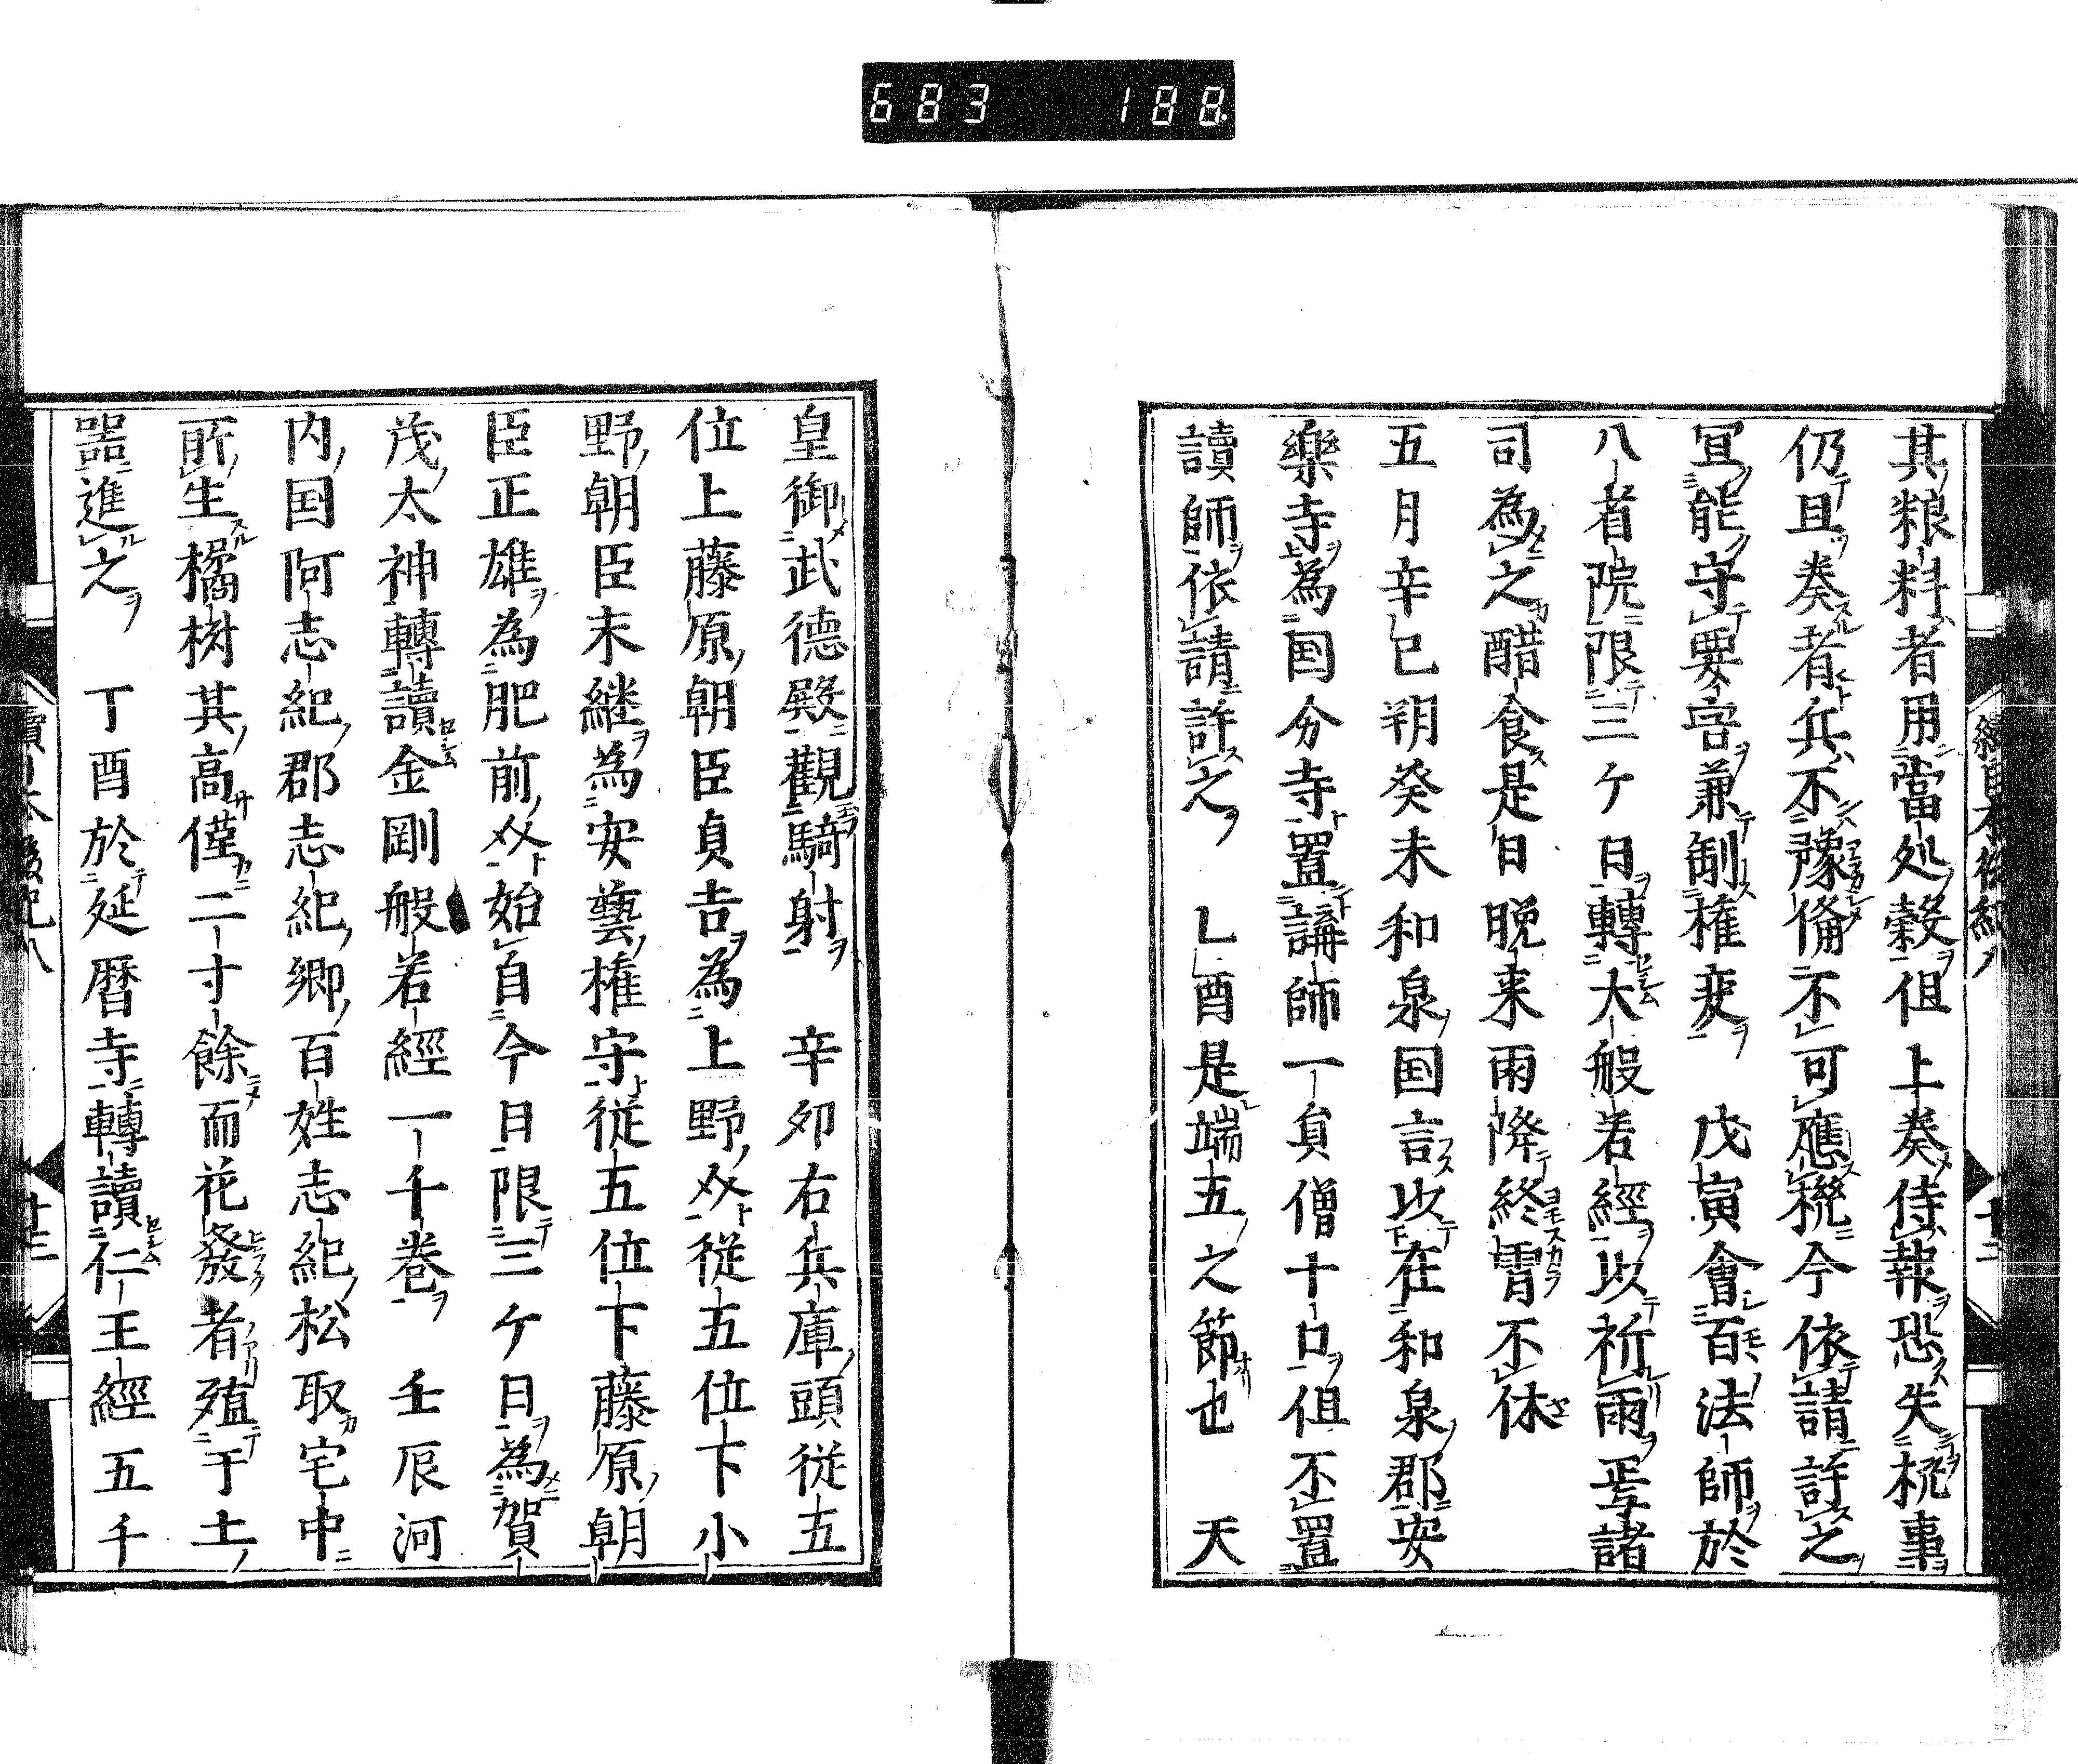 683 188
其粮料者用當処穀但上奏待報恐失机事
仍且奏者兵不豫俻不可應機今依請許之
宜能守要害兼制権変　戊寅會百法師於
八者院限三ケ日轉大般若經以祈雨焉諸
司為之醋食是日晩来雨降終霄不休
五月辛巳朔癸未和泉国言以在和泉郡安
樂寺為国分寺置講師一負僧十口但不置
讀師依請許之　乚酉是端五之節也　天
皇御武德殿觀騎射　辛夘右兵庫頭従五
位上藤原朝臣貞吉為上野々従五位下小
野朝臣末継為安藝権守従五位下藤原朝
臣正雄為肥前々始自今日限三ケ日為賀
茂太神轉讀金剛般若經一千巻　壬辰河
内国阿志紀郡志紀郷百姓志紀松取宅中
所生橘树其高僅二寸餘而花發者殖于土
噐進之　丁酉於延暦寺轉讀仁王經五千